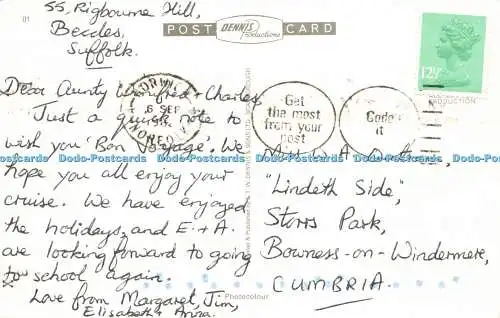 01
55, Rigbourne Hill,
Beccles,
Suffolk.
POST DENNIS Productions CARD
12½P
NORWICH
6 SEP
NORFOLK
Get
the most
from your
post
Code
it
Dear Aunty Winifred & Charles,
Just a quick note to
wish you 'Bon Voyage'. We
hope you all enjoy your
cruise. We have enjoyed
the holidays, and E + A
are looking forward to going
to school again.
Love from Margaret, Jim,
Elisabeth & Anna.
"Lindeth Side",
Storrs Park,
Bowness-on-Windermere,
CUMBRIA.
Photocolour
Dodo-Postcards Dodo-Postcards Dodo-Postcards Dodo-Postcards